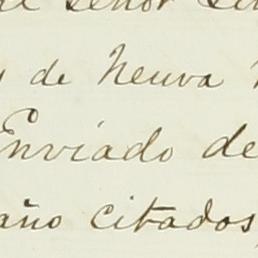 señor
de Neuva
Enviado de
año citados,